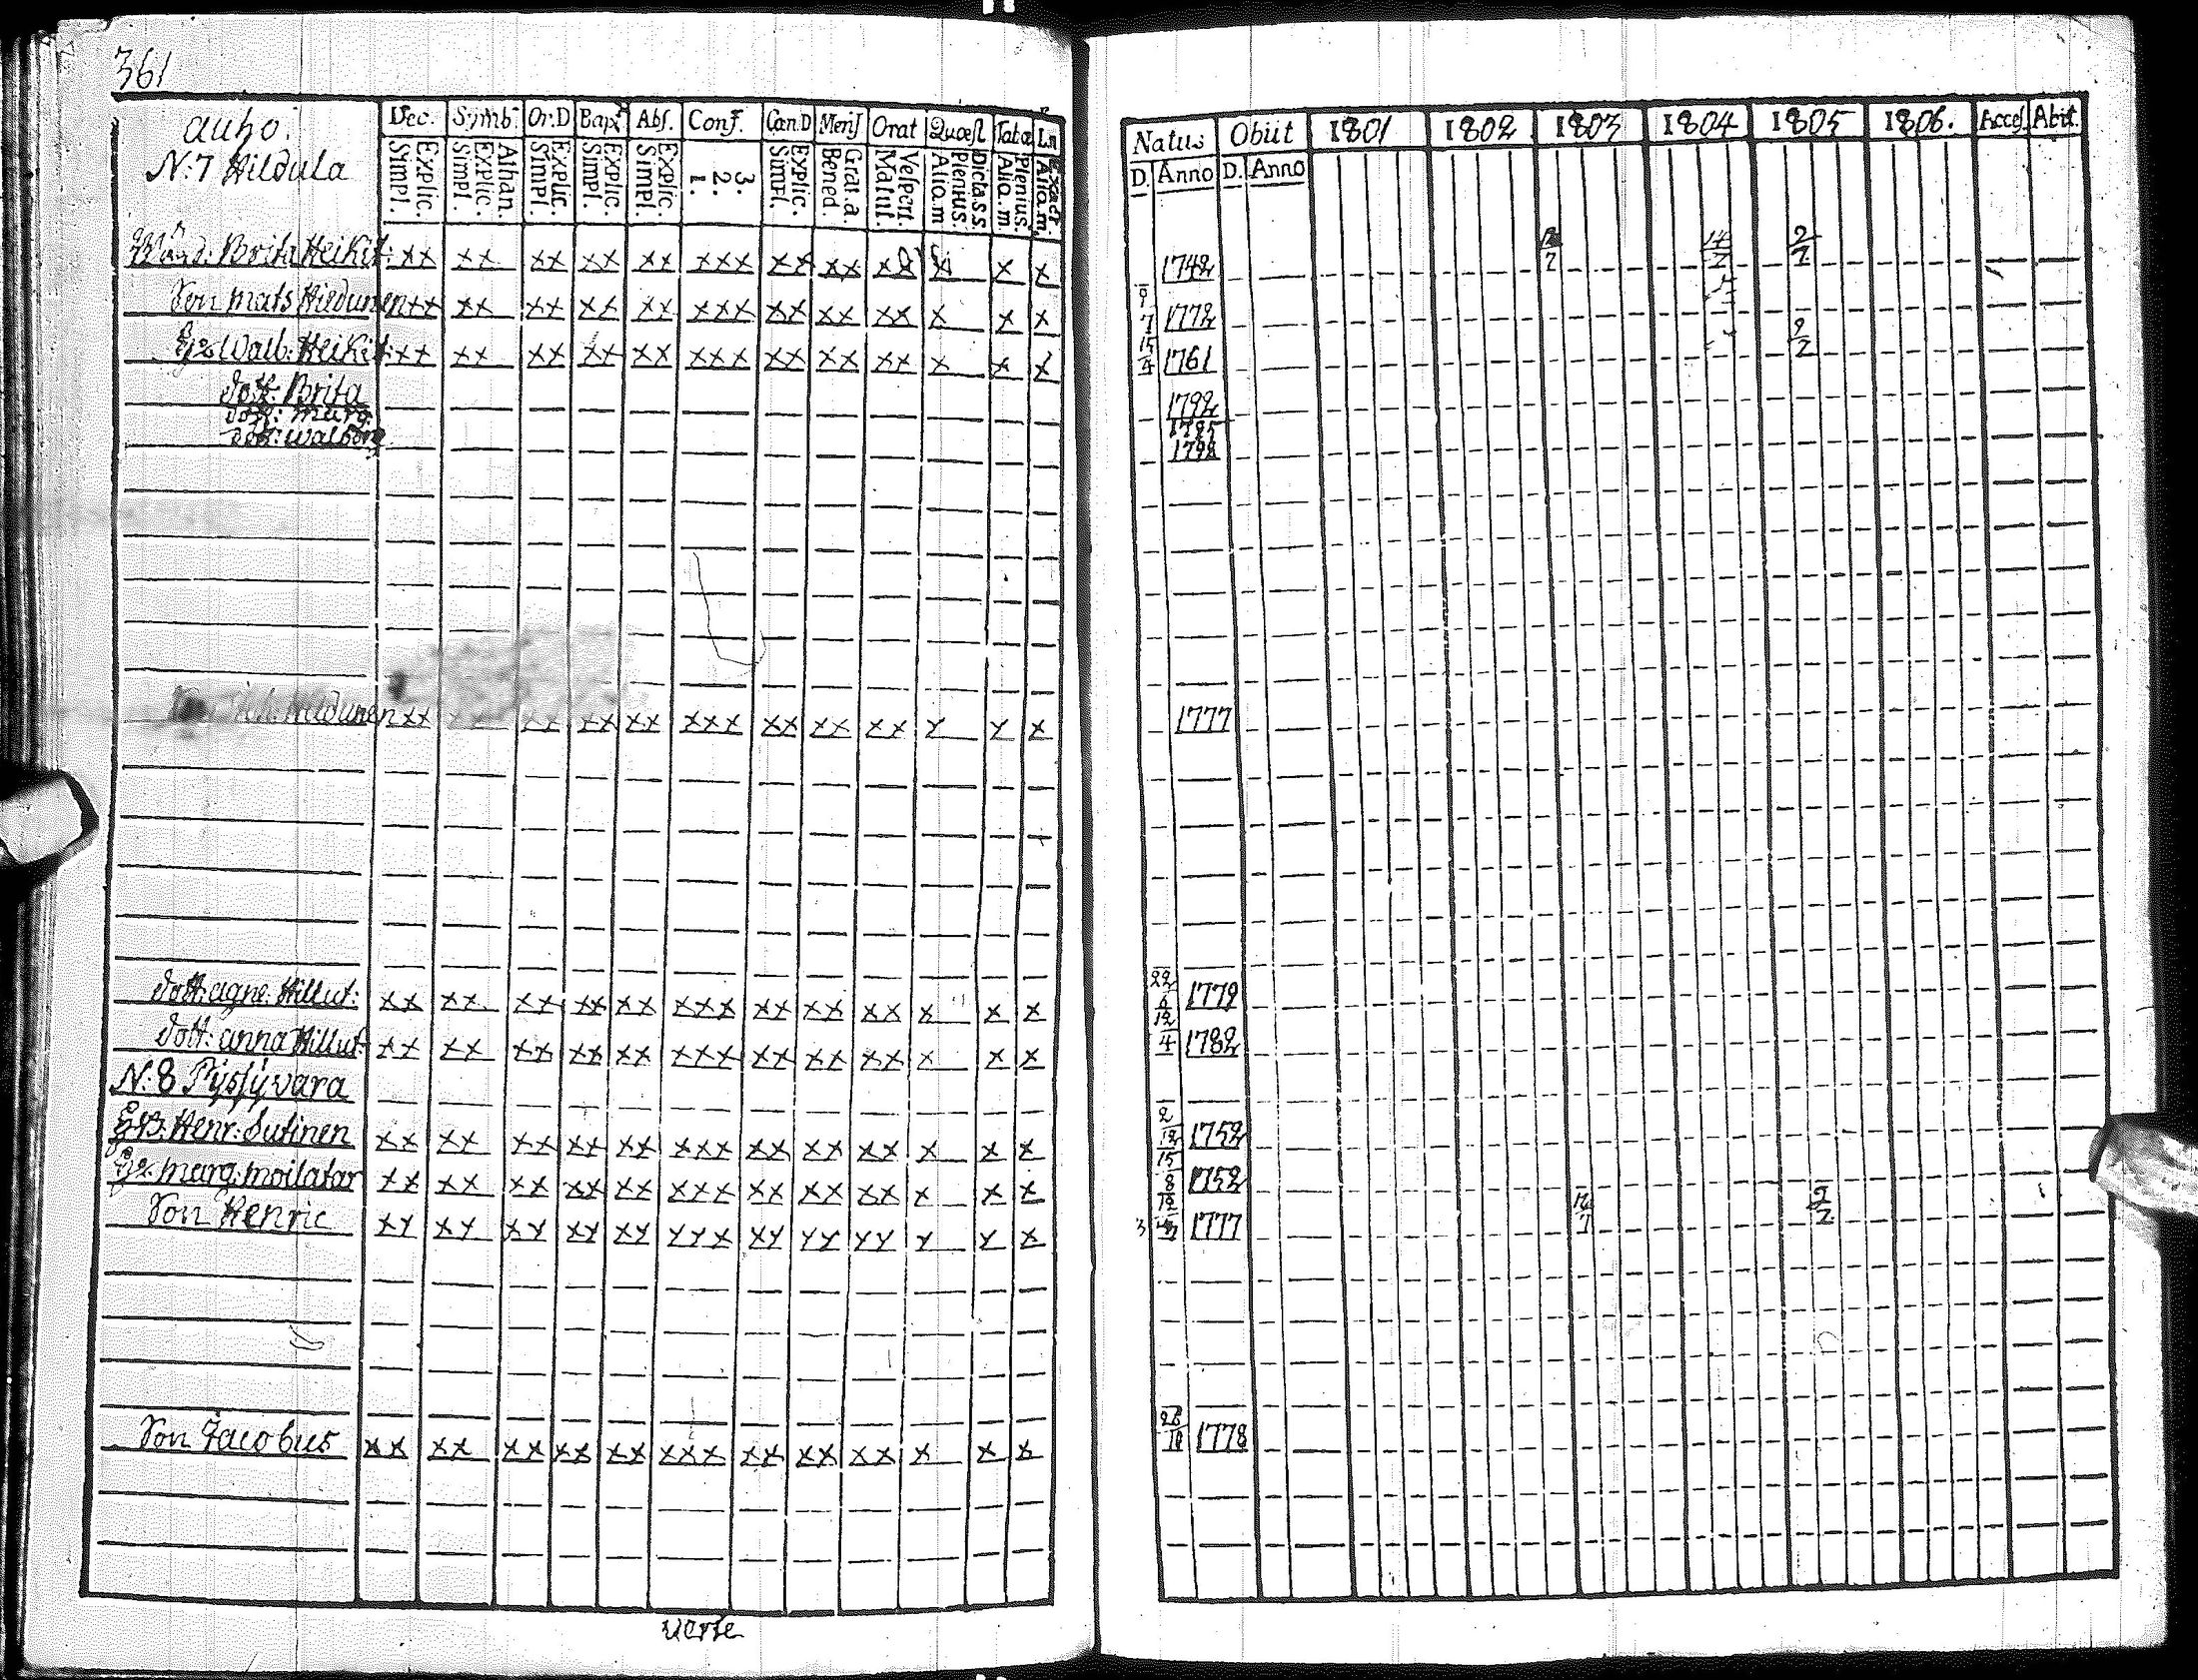 361
auho.
N:7 Hildula
Dec. Symb. Or.D Bapt Abs. Conf. Can.D Mens Orat Quæst Tabæ Ln
Explic. Simpl. Athan. Explic. Simpl. Explic. Simpl. Explic. Simpl. Explic. Simpl. 3. 2. 1. Explic. Simpl. Grat.a. Bened. Vespert. Matut. Dicta.s.s. Plenius. Aliq.m Plenius. Aliq.m Exact. Aliq.m.
Natus Obiit 1801 1802 1803 1804 1805 1806. Acces. Abit.
D. Anno D. Anno
Brita Heikit: xx xx xx xx xx xxx xx xx xx x x x 1742 7 14/7 2/7
Son mats Hildunen xx xx xx xx xx xxx xx xx xx x x x 9/7 1772
Walb: Heikit: xx xx xx xx xx xxx xx xx xx x x x 15/4 1761 2/2
dott: Brita 1792
dott: marg: 1795
dott: walbor 1798
Joh: Hildunen xx xx xx xx xx xxx xx xx xx x x x 1777
dott: agne: Hillut: xx xx xx xx xx xxx xx xx xx x x x 22/6 1779
dott: anna Hillut: xx xx xx xx xx xxx xx xx xx x x x 12/4 1782
N:8 Pyssyvara
Henr: Sutinen xx xx xx xx xx xxx xx xx xx x x x 2/12 1752
marg: moilatar xx xx xx xx xx xxx xx xx xx x x x 15/8 1752
Son Henric xx xx xx xx xx xxx xx xx xx x x x 1777 12/7 2/2
Son Jacobus xx xx xx xx xx xxx xx xx xx x x x 26/10 1778
verte